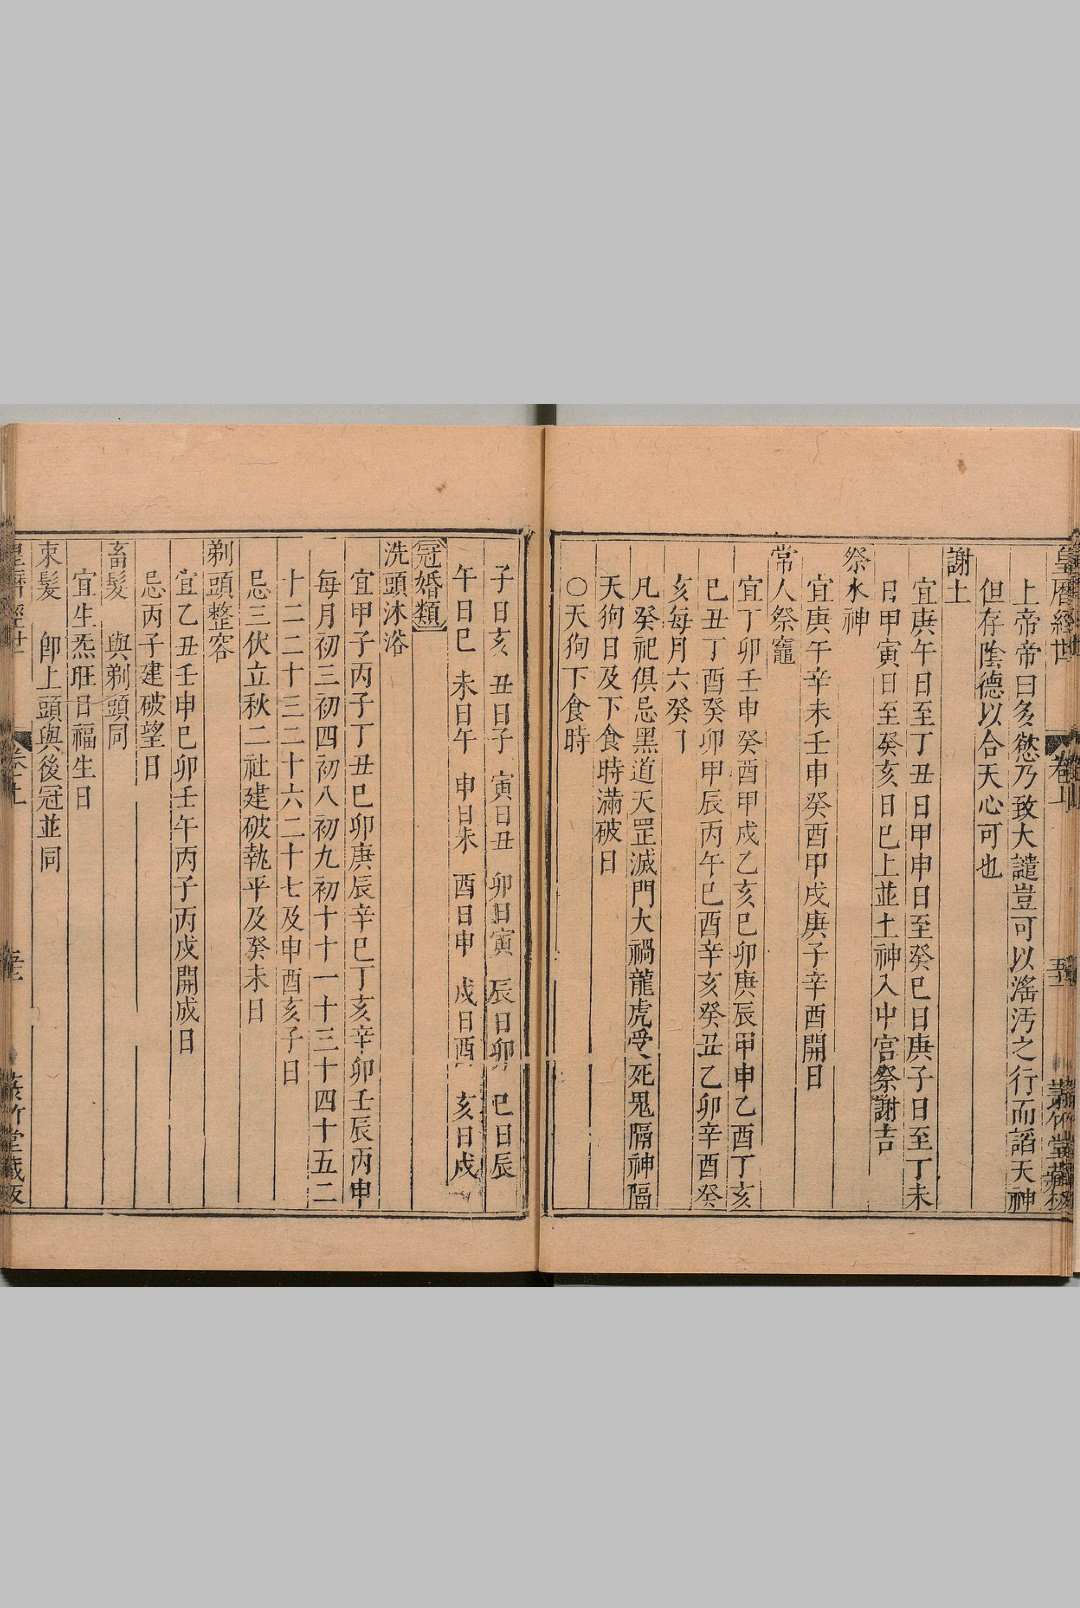 皇曆經世 卷
上帝帝曰多慾乃致大譴豈可以滛汚之行而謟天神
但存隂德以合天心可也
謝土
宜庚午日至丁丑日甲申日至癸巳日庚子日至丁未
日甲寅日至癸亥日巳上並土神入中宮祭謝吉
祭水神
宜庚午辛未壬申癸酉甲戌庚子辛酉開日
常人祭竈
宜丁卯壬申癸酉甲戌乙亥巳卯庚辰甲申乙酉丁亥
巳丑丁酉癸卯甲辰丙午巳酉辛亥癸丑乙卯辛酉癸
亥每月六癸日
凡癸祀俱忌黑道天罡滅門大禍龍虎受死鬼隔神隔
天狗日及下食時滿破日
○天狗下食時
子日亥 丑日子 寅日丑 卯日寅 辰日卯 巳日辰
午日巳 未日午 申日未 酉日申 戌日酉 亥日戌
冠婚類
洗頭沐浴
宜甲子丙子丁丑巳卯庚辰辛巳丁亥辛卯壬辰丙申
每月初三初四初八初九初十十一十三十四十五二
十二二十三二十六二十七及申酉亥子日
忌三伏立秋二社建破執平及癸未日
剃頭整容
宜乙丑壬申巳卯壬午丙子丙戌開成日
忌丙子建破望日
畜髮 與剃頭同
宜生炁旺日福生日
束髮 卽上頭與後冠並同
竹堂藏板